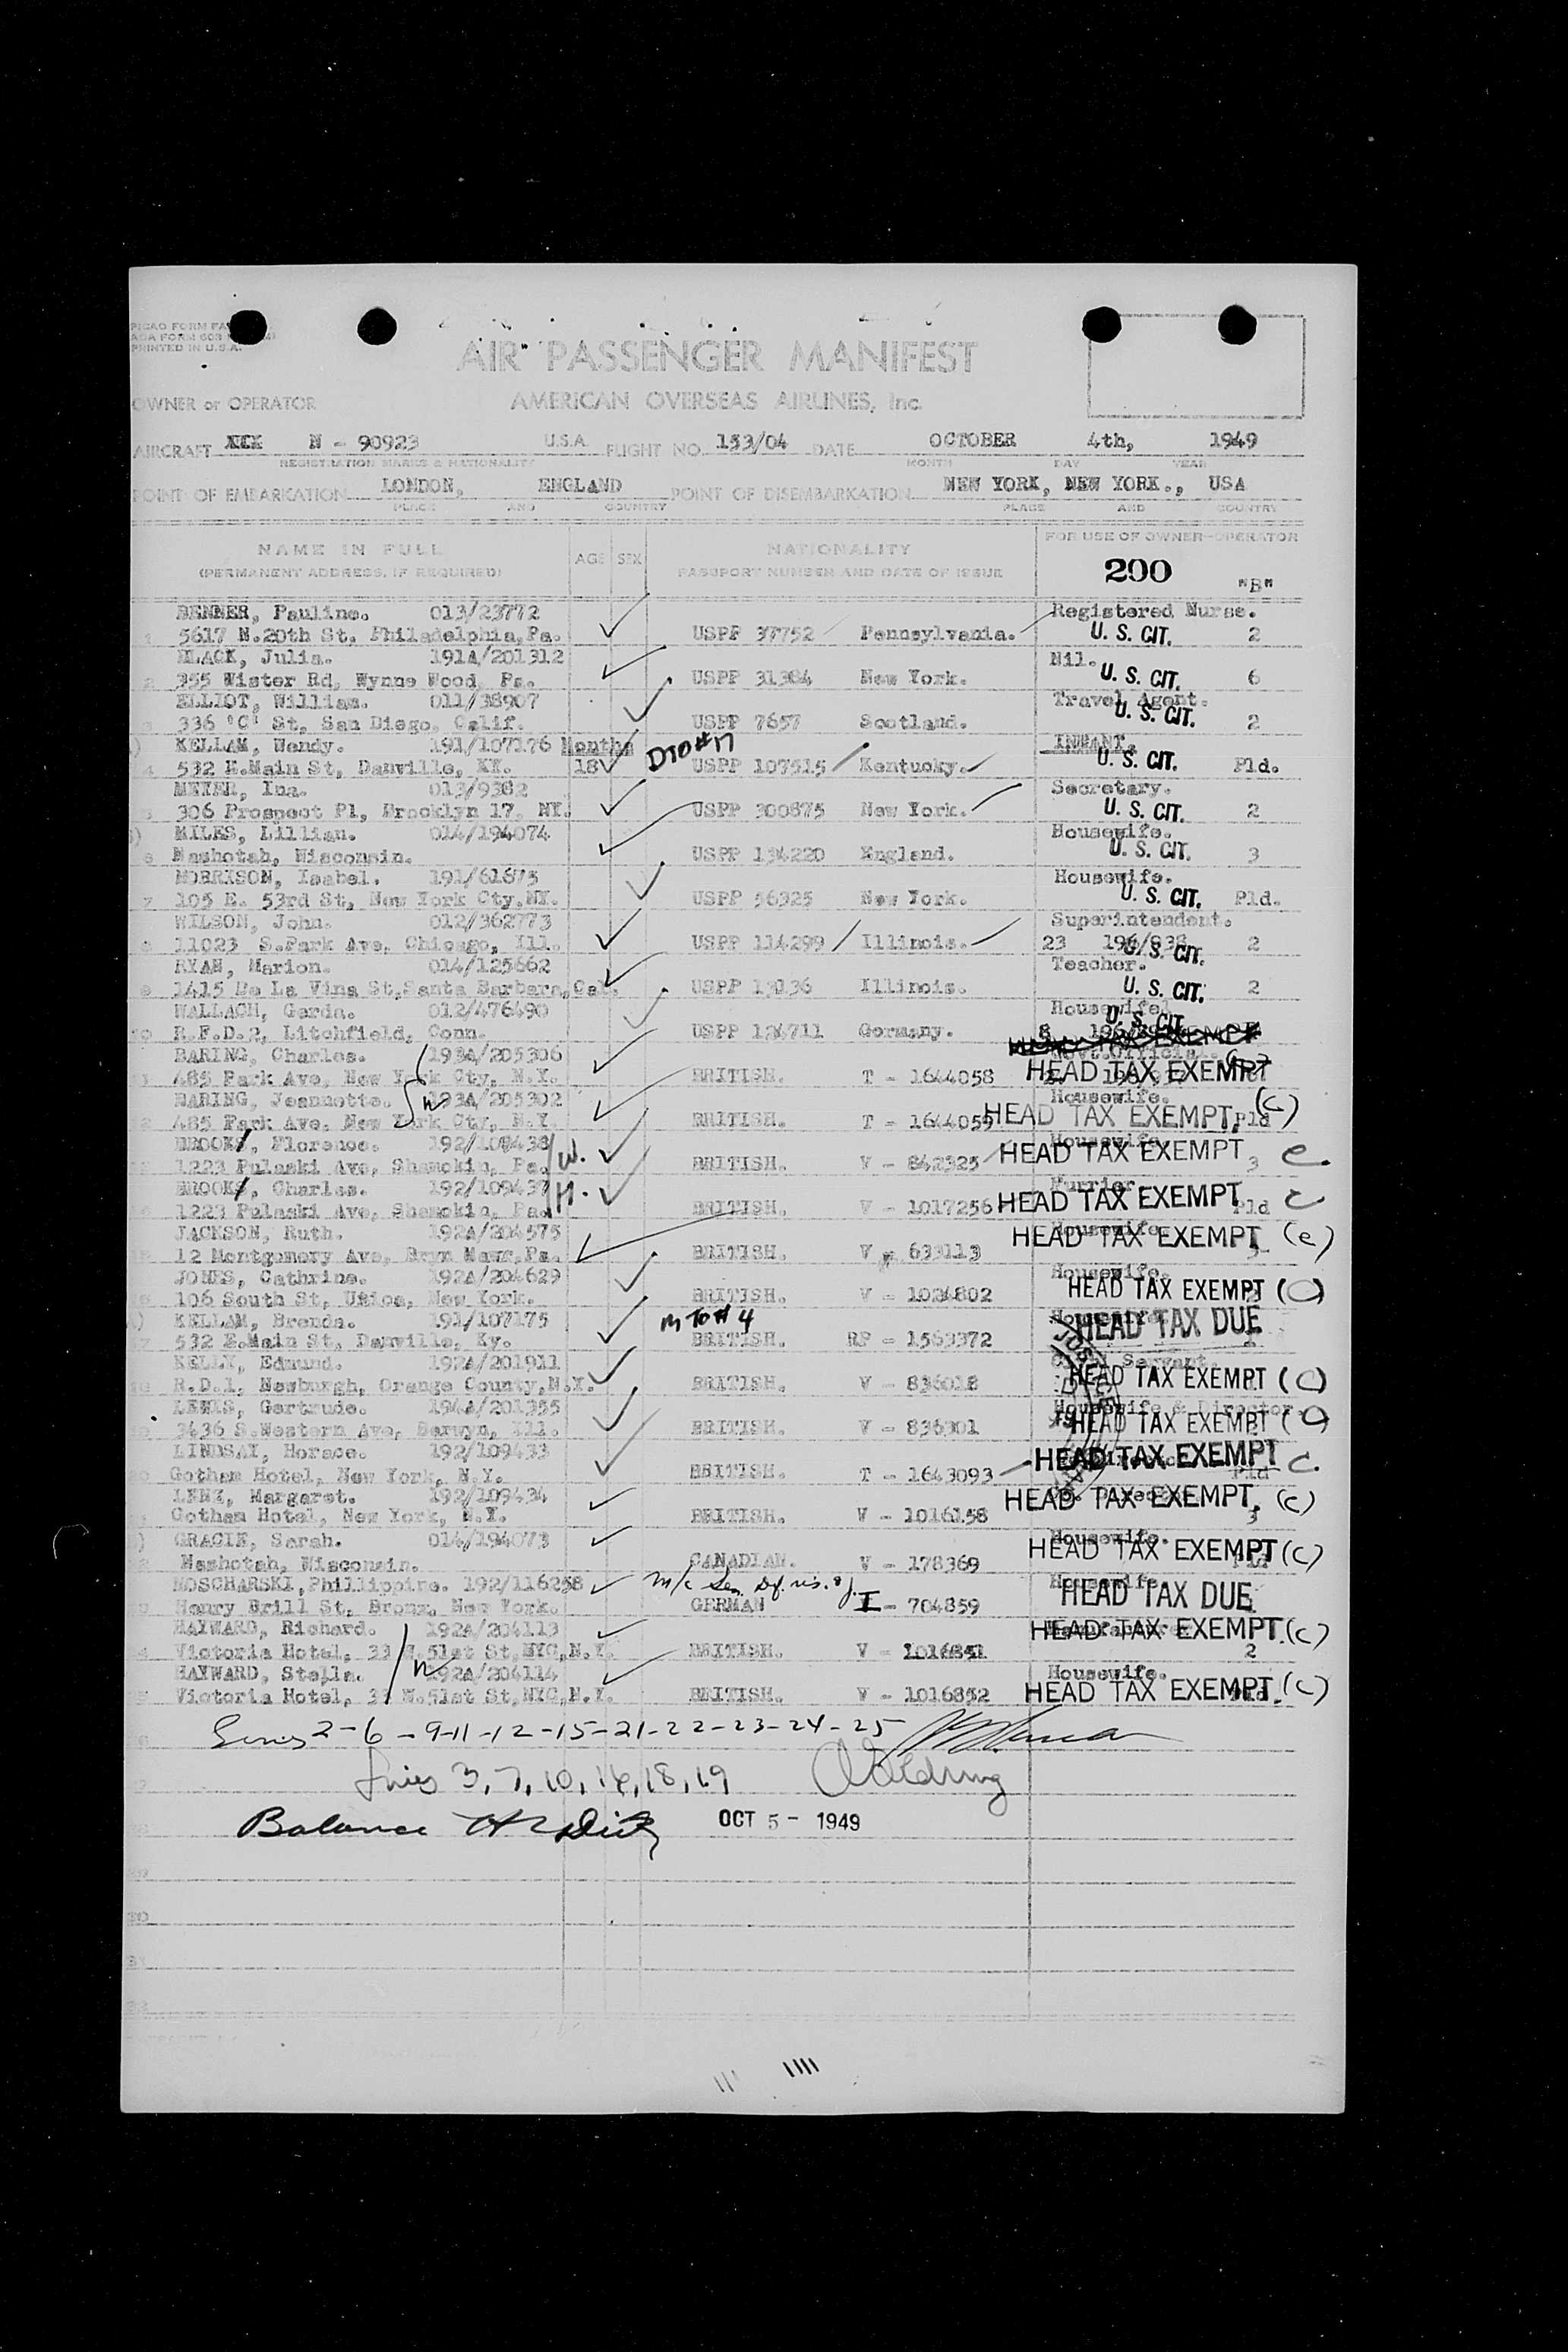 PRINTED IN U.S.A.
AIR PASSENGER MANIFEST
OWNER or OPERATOR AMERICAN OVERSEAS AIRLINES, Inc.
AIRCRAFT XXX N - 90923 U.S.A. FLIGHT NO. 153/04 DATE OCTOBER 4th, 1949
REGISTRATION MARKS & NATIONALITY MONTH DAY YEAR
POINT OF EMBARKATION LONDON, ENGLAND POINT OF DISEMBARKATION NEW YORK, NEW YORK., USA
PLACE AND COUNTRY PLACE AND COUNTRY
NAME IN FULL AGE SEX NATIONALITY FOR USE OF OWNER-OPERATOR
(PERMANENT ADDRESS, IF REQUIRED) PASSPORT NUMBER AND DATE OF ISSUE 200 "B"
BENNER, Pauline. 013/23772 Registered Nurse.
1 5617 N.20th St. Philadelphia, Pa. USPP 37752 Pennsylvania. U. S. CIT. 2
BLACK, Julia. 191A/201312 Nil.
2 355 Wister Rd, Wynne Wood, Pa. USPP 31384 New York. U. S. CIT. 6
ELLIOT, William. 011/38907 Travel Agent.
3 336 'C' St, San Diego, Calif. USPP 7657 Scotland. U. S. CIT. 2
KELLAM, Wendy. 191/107176 Months DTO#17 INFANT.
4 532 E.Main St, Danville, KY. 18 USPP 107515 Kentucky. U. S. CIT. Pld.
MEYER, Ina. 013/9382 Secretary.
5 306 Prospect Pl, Brooklyn 17, NY. USPP 300875 New York. U. S. CIT. 2
MILES, Lillian. 014/194074 Housewife.
6 Nashotah, Wisconsin. USPP 134220 England. U. S. CIT. 3
MORRISON, Isabel. 191/61675 Housewife.
7 105 E. 53rd St, New York Cty,NY. USPP 56325 New York. U. S. CIT. Pld.
WILSON, John. 012/362773 Superintendent.
8 11023 S.Park Ave, Chicago, Ill. USPP 114299 Illinois. 23 196/938 U. S. CIT. 2
RYAN, Marion. 014/125662 Teacher.
9 1415 De La Vina St,Santa Barbara,Cal. USPP 13036 Illinois. U. S. CIT. 2
WALLACH, Gerda. 012/476490 Housewife.
10 R.F.D.2, Litchfield, Conn. USPP 124711 Germany. U. S. CIT.
BARING, Charles. 193A/205306 Govt.Official.
485 Park Ave, New York Cty, N.Y. BRITISH. T - 1644058 HEAD TAX EXEMPT
BARING, Jeannette. W 193A/205302 Housewife. (c)
12 485 Park Ave. New York Cty, N.Y. BRITISH. T - 1644059 HEAD TAX EXEMPT. Pld
BROOKS, Florence. 192/109438 W. Housewife.
1223 Pulaski Ave, Shamokin, Pa. BRITISH. V - 842325 HEAD TAX EXEMPT 3 c.
BROOKS, Charles. 192/109437 H. Furrier
1223 Pulaski Ave, Shamokin, Pa. BRITISH. V - 1017256 HEAD TAX EXEMPT Pld c
JACKSON, Ruth. 192A/204575 Housewife.
12 Montgomery Ave, Bryn Mawr,Pa. BRITISH. V - 633113 HEAD TAX EXEMPT (c)
JONES, Cathrine. 192A/204629 Housewife.
106 South St, Utica, New York. BRITISH. V - 1024802 HEAD TAX EXEMPT (C)
KELLAM, Brenda. 191/107175 M TO# 4 Housewife
532 E.Main St, Danville, Ky. BRITISH. RP - 1563372 HEAD TAX DUE
KELLY, Edmund. 192A/201911 Civil Servant.
R.D.1, Newburgh, Orange County,N.Y. BRITISH. V - 836018 HEAD TAX EXEMPT (C)
LEWIS, Gertrude. 194A/201355 Housewife & Director.
3436 S.Western Ave, Berwyn, Ill. BRITISH. V - 836301 HEAD TAX EXEMPT (C)
LINDSAY, Horace. 192/109433
20 Gotham Hotel, New York, N.Y. BRITISH. T - 1643093 HEAD TAX EXEMPT Pld c.
LENZ, Margaret. 192/109434
Gotham Hotel, New York, N.Y. BRITISH. V - 1016158 HEAD TAX EXEMPT. (c) 3
GRACIE, Sarah. 014/194073 Housewife.
Nashotah, Wisconsin. CANADIAN. V - 178369 HEAD TAX EXEMPT (c)
MOSCHARSKI,Phillippine. 192/116258 Housewife
Henry Brill St, Bronx, New York. GERMAN I - 704859 HEAD TAX DUE
HAYWARD, Richard. 192A/204113
Victoria Hotel, 33 W.51st St,NYC,N.Y. BRITISH. V - 1016851 HEAD TAX EXEMPT. (c) 2
HAYWARD, Stella. W 192A/204114 Housewife.
Victoria Hotel, 33 W.51st St,NYC,N.Y. BRITISH. V - 1016852 HEAD TAX EXEMPT. (c)
Lines 2-6-9-11-12-15-21-22-23-24-25
Lines 3, 7, 10, 16, 18, 19
Balance
OCT 5 - 1949
30